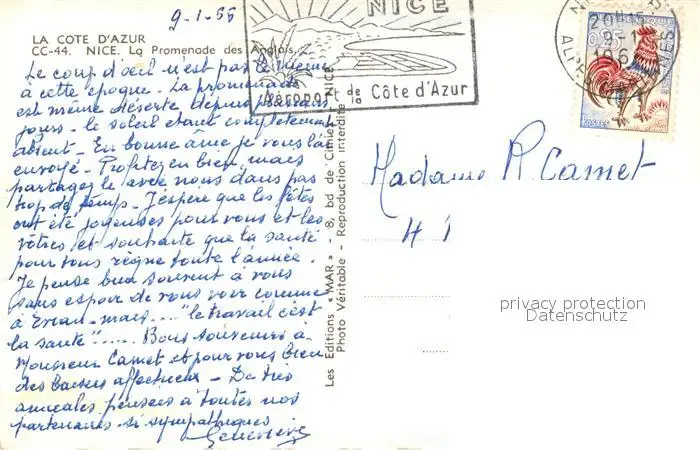 9-1-66
LA COTE D'AZUR
CC-44. NICE. La Promenade des Anglais.
Le coup d'œil n'est pas le même
à cette époque. La promenade
est même déserte depuis plusieurs
jours. le soleil étant complètement
absent. En bonne âme je vous l'ai
envoyé. Profitez en bien, mais
partagez le avec nous dans pas
trop de temps. J'espère que les fêtes
ont été joyeuses pour vous et les
vôtres, et souhaite que la santé
pour tous règne toute l'année.
Je pense bien souvent à vous
sans espoir de vous voir comme
à Evian... mais... "le travail c'est
la santé"...... Bons souvenirs à
Monsieur Camet et pour vous bien
des baisers affectueux - De très
amicales pensées à toutes nos
partenaires si sympathiques
Geneviève
NICE
Aéroport de la Côte d'Azur
20H15
9-1
196
ALPES
POSTES
Les Editions « MAR » - 8, bd de Cimiez - NICE
Photo Véritable - Reproduction interdite
Madame R Camet
privacy protection
Datenschutz